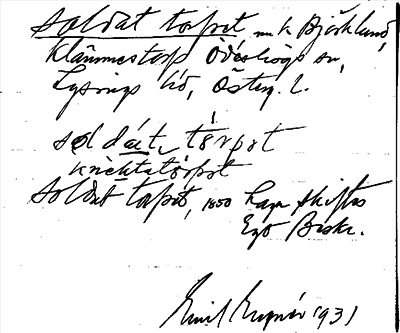 soldat torpet, m.k. Björklund,
Klämmestorp Ödeshögs sn,
Lysings hd, Österg. l.
soldäte törpet
knèktatörpet
soldat torpet, 1850 Laga skiftes
Ego Beskr.
Emil 1931